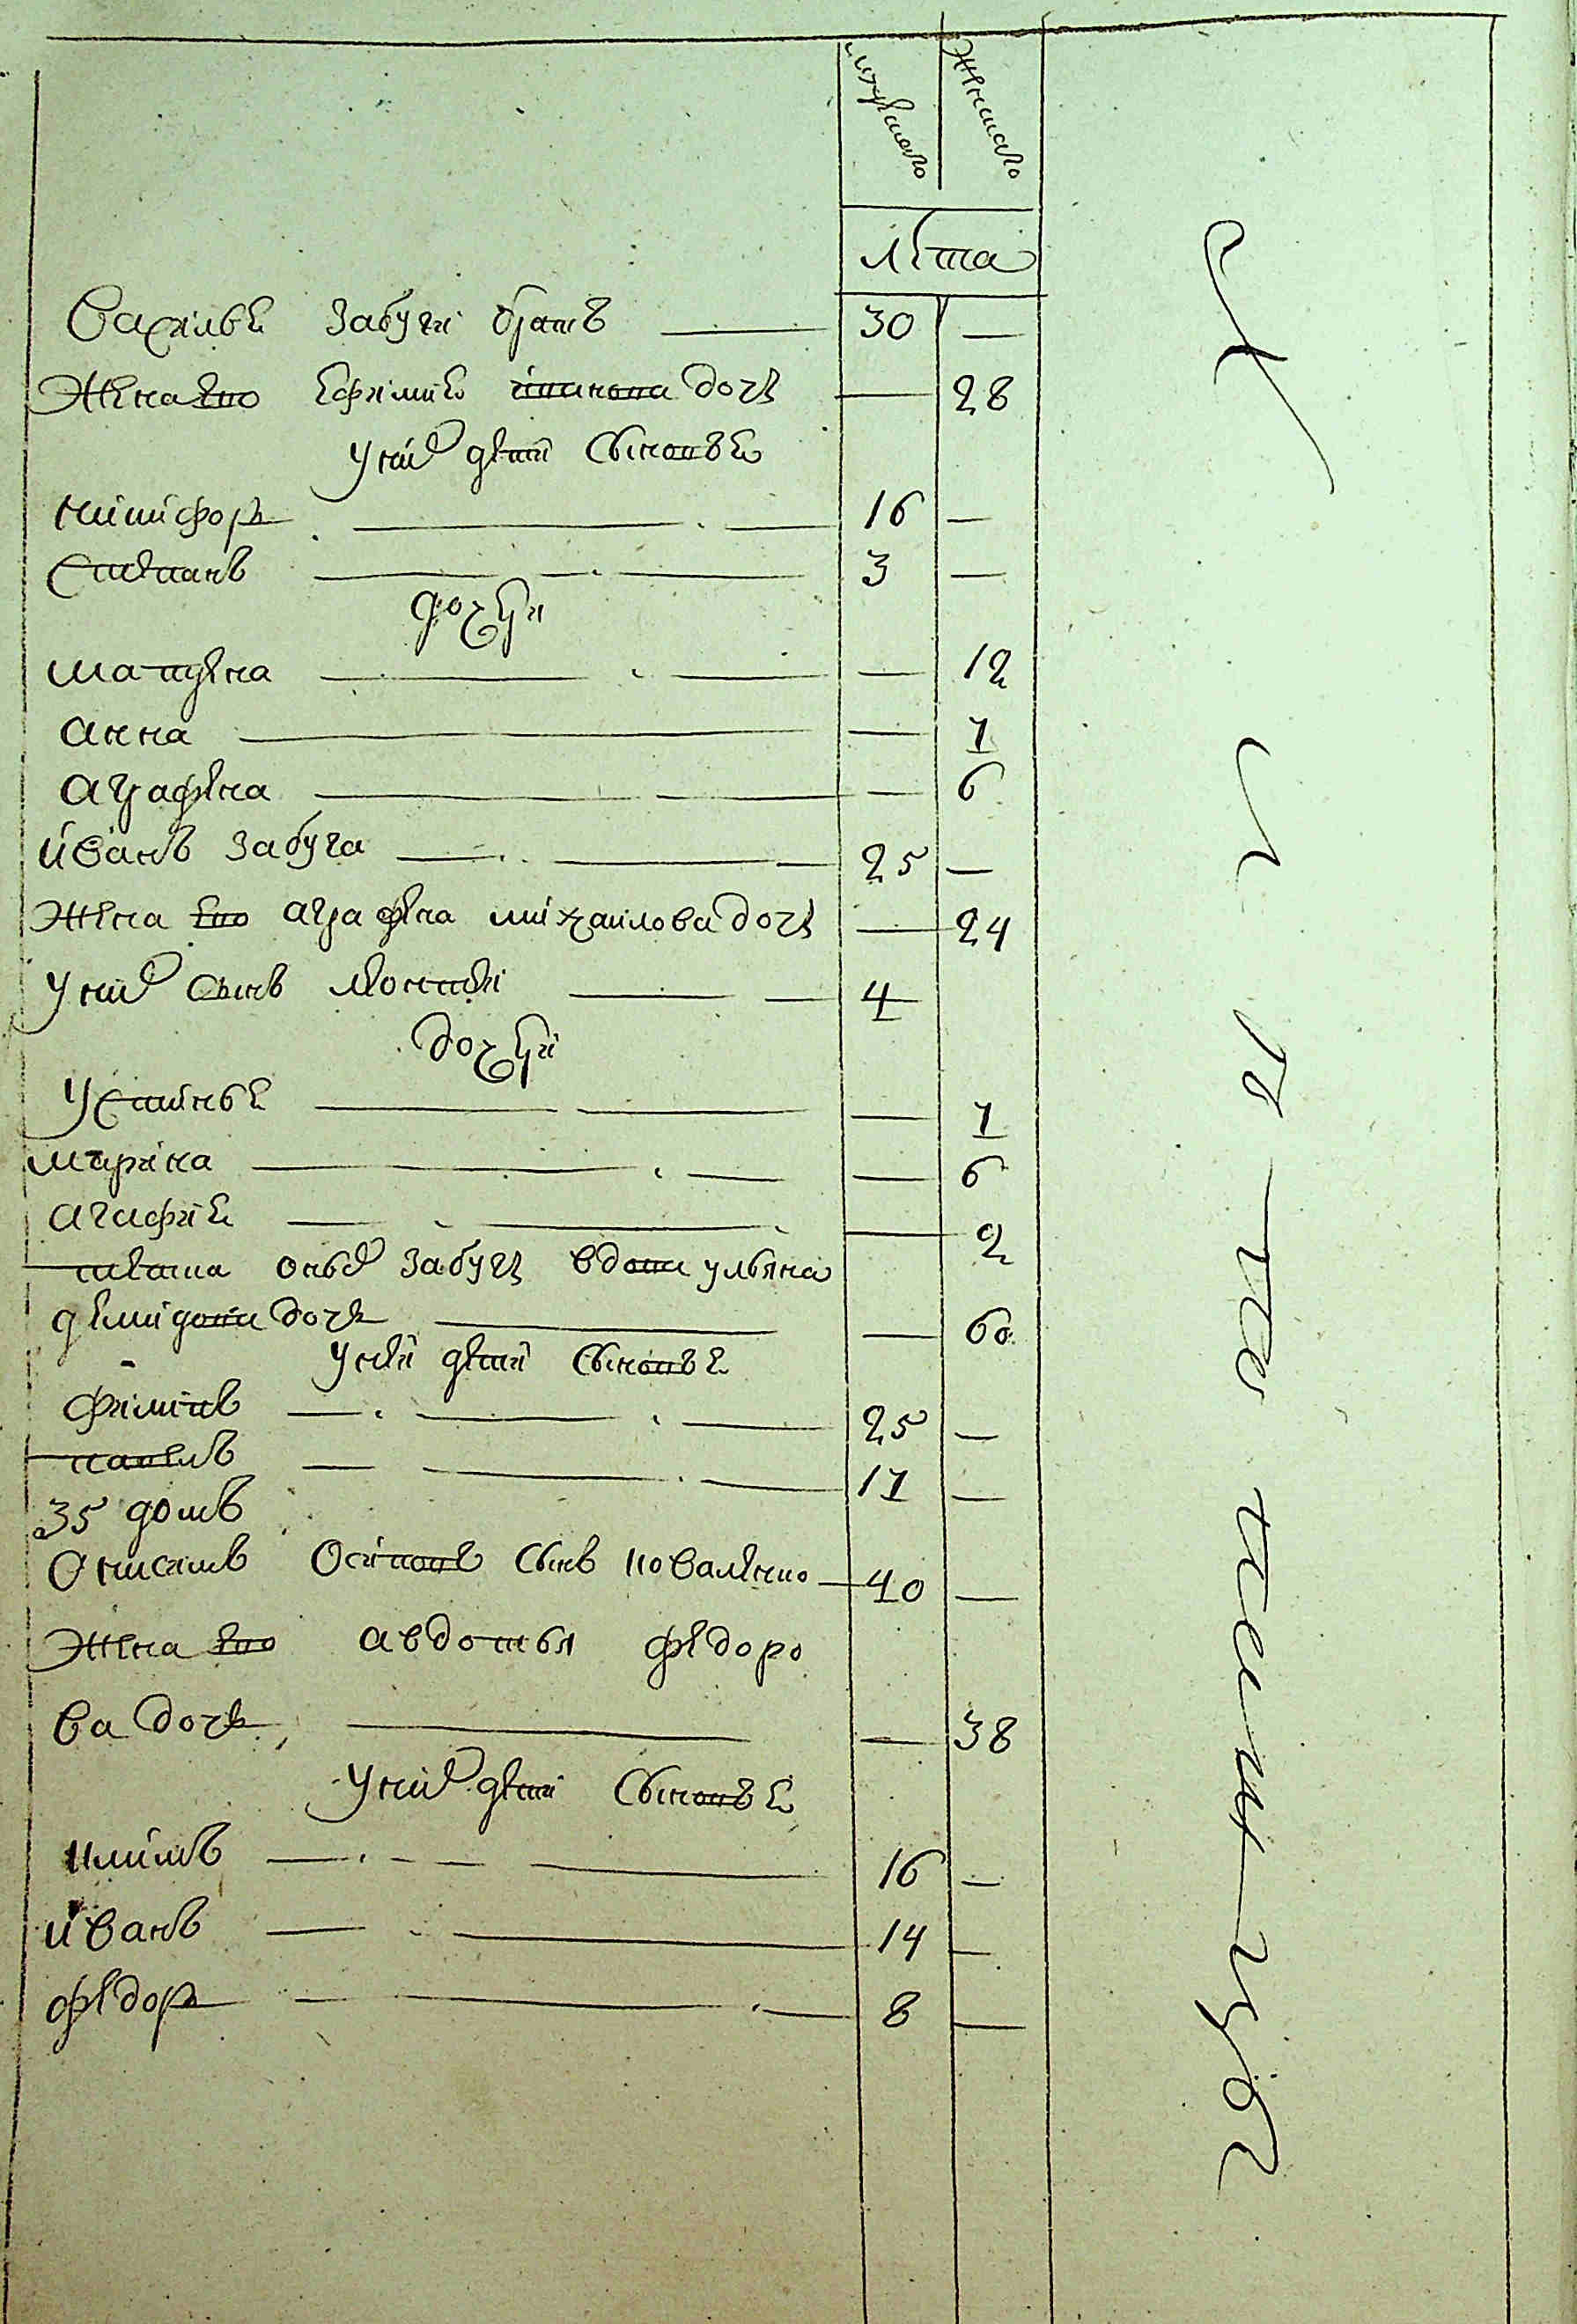 мужеска женска
лѣта
Василей Забуги братъ 30 —
Жена его Ефимия дочь — 28
У них дети сыновья
никифоръ 16 —
Степанъ 3 —
дочери
матрена — 12
анна — 7
аграфена — 6
иванъ Забуга 25 —
Жена его аграфена михаилова дочь — 24
У них сынъ леонтей 4
дочери
Устинья — 7
марина — 6
агафия — 2
тетка оных Забуг вдова ульяна
демидова дочь — 60
У ней дети сыновья
филипъ 25 —
павелъ 17 —
35 домъ
Онисимъ Осиповъ сынъ коваленко 40 —
Жена его авдотья федоро
ва дочь — 38
У них дети сыновья
климъ 16 —
иванъ 14 —
федоръ 8 —